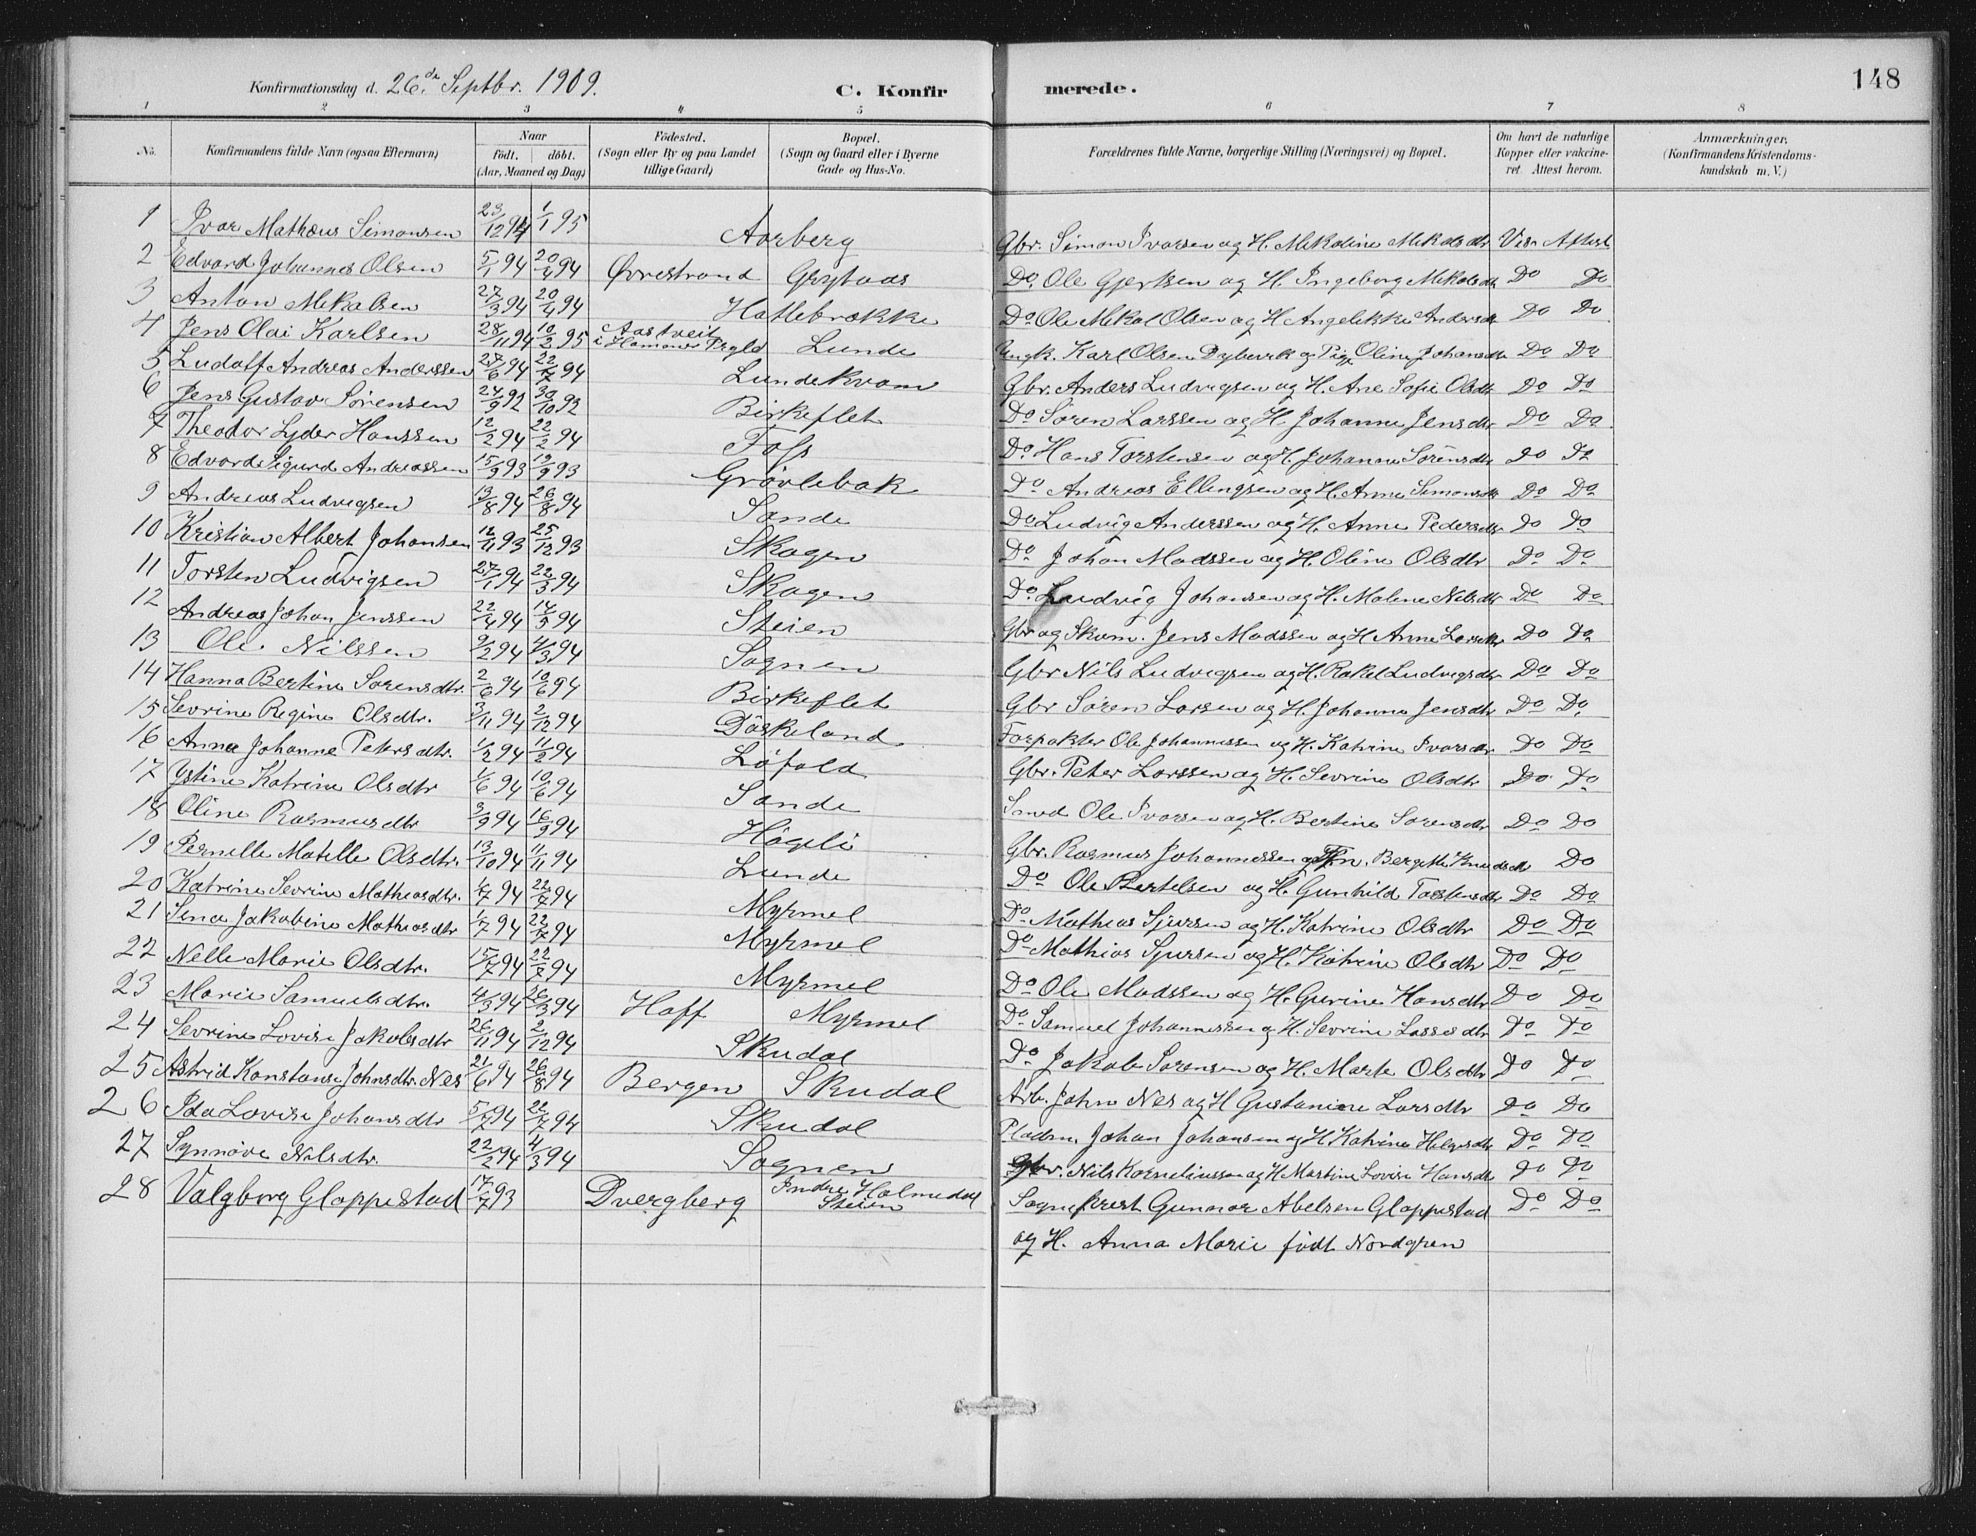 Konfirmationsdag d. 26de Septbr. 1909. C. Konfirmerede. 148
1 2 3 4 5 6 7 8
No. Konfirmandens fulde Navn (ogsaa Efternavn) Naar født. døbt. (Aar, Maaned og Dag) Födested. (Sogn eller By og paa Landet tillige Gaard) Bopæl. (Sogn og Gaard eller i Byerne Gade og Hus-No. Forældrenes fulde Navne, borgerlige Stilling (Næringsvei) og Bopæl. Om havt de naturlige Kopper eller vakcineret. Attest herom. Anmærkninger. (Konfirmandens Kristendomskundskab m. V.)
1 Ivar Mathæus Simonsen 23/12 94 1/1 95 Aarberg Gbr. Simon Ivarsen og H. Mekaline Mekalsdtr Vis. Attest
2 Edvard Johannes Olsen 5/1 94 20/4 94 Øvrestrand Grytaas Do. Ole Gjertsen og H. Ingeborg Mekalsdtr Do Do
3 Anton Mekalsen 27/3 94 20/4 94 Hatlebrække Do Ole Mekal Olsen og H Angelikke Andersdtr Do Do
4 Jens Olai Karlsen 28/11 94 10/2 95 Aastveit i Hammer Prgld Lunde Ungk. Karl Olsen Dybevik og Pige Oline Johansdtr Do Do
5 Ludolf Andreas Anderssen 27/6 94 22/7 94 Lundekvam Gbr. Anders Ludvigsen og H. Ane Sofie Olsdtr Do Do
6 Jens Gustav Sørensen 24/9 92 30/10 92 Birkeflet Do Søren Larssen og H. Johanne Jensdtr Do Do
7 Theodor Lyder Hanssen 12/2 94 22/2 94 Foss Do Hans Torstensen og H. Johanne Sørensdtr Do Do
8 Edvard Sigurd Andreassen 15/9 93 19/9 93 Grøvlebak Do Andreas Ellingsen og H. Anne Simonsdtr Do Do
9 Andreas Ludvigsen 13/8 94 26/8 94 Sande Do Ludvig Anderssen og H. Anne Pedersdtr Do Do
10 Kristian Albert Johansen 12/11 93 25/12 93 Skagen Do Johan Madssen og H. Oline Olsdtr Do Do
11 Torsten Ludvigsen 27/1 94 22/3 94 Skagen Do Ludvig Johansen og H. Malene Nilsdtr Do Do
12 Andreas Johan Jenssen 22/4 94 14/5 94 Steien Gbr og Skom. Jens Madssen og H Anne Larsdtr Do Do
13 Ole Nilssen 9/2 94 4/3 94 Sognen Gbr Nils Ludvigsen og H. Rakel Ludvigsdtr Do Do
14 Hanna Bertine Sørensdtr. 2/6 94 10/6 94 Birkeflet Gbr Søren Larsen og H. Johanne Jensdtr Do Do
15 Sevrine Regine Olsdtr. 3/11 94 2/12 94 Døskeland Forpakter Ole Johannessen og H. Katrine Ivarsdtr Do Do
16 Anna Johanne Petersdtr. 1/2 94 11/2 94 Løfald Gbr. Peter Larssen og H. Sevrine Olsdtr Do Do
17 Ystine Katrine Olsdtr 1/6 94 10/6 94 Sande Smed Ole Ivarsen og H. Bertine Sørensdtr Do Do
18 Oline Rasmusdtr 3/9 94 16/9 94 Høgeli Gbr. Rasmus Johannessen og Bergitte Knudsdtr Do
19 Pernille Matelle Olsdtr. 13/10 94 11/11 94 Lunde Do Ole Bertelsen og H. Gunhild Torstensdtr Do Do
20 Katrine Sevrine Mathiasdtr. 1/7 94 22/7 94 Myrmel Do Mathias Sjursen og H. Katrine Olsdtr Do Do
21 Sina Jakobine Mathiasdtr 1/7 94 22/7 94 Myrmel Do Mathias Sjurssen og H. Katrine Olsdtr Do Do
22 Nelle Marie Olsdtr. 15/7 94 22/7 94 Myrmel Do Ole Madssen og H. Gurine Hansdtr Do Do
23 Marie Samuelsdtr. 4/3 94 26/3 94 Haff Myrmel Do Samuel Johannessen og H. Sevrine Lassesdtr Do Do
24 Sevrine Lovise Jakobsdtr 26/11 94 2/12 94 Skudal Do Jakob Sørensen og H. Marte Olsdtr Do Do
25 Astrid Konstanse Johnsdtr. Nes 21/6 94 26/8 94 Bergen Skudal Arb. John Nes og H Gustanine Larsdtr Do Do
26 Ida Lovise Johansdtr 5/7 94 22/7 94 Skudal Pladsm. Johan Johansen og H. Katrine Helgesdtr Do Do
27 Synnøve Nilsdtr. 22/2 94 4/3 94 Sognen Gbr. Nils Korneliussen og H Martine Lovise Hansdtr Do Do
28 Valgborg Gloppestad 17/7 93 Dvergberg Indre Holmedal Steien Sogneprest Gunnar Abelsen Gloppestad Do Do
og H. Anna Marie født Nordgren